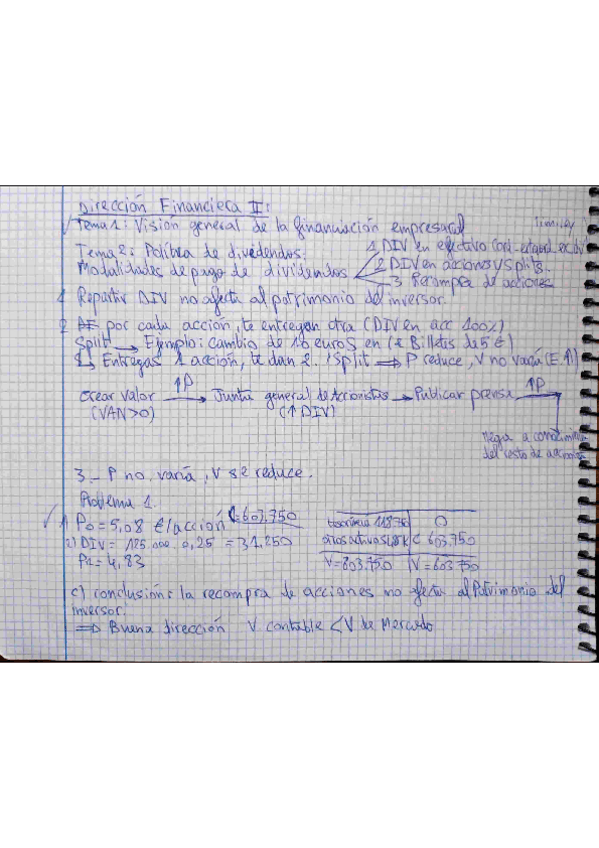 Dirección Financiera II:
Tema 1: Visión general de la financiación empresarial
Tema 2: Política de dividendos:
Modalidades de pago de dividendos
1 DIV en efectivo
2 DIV en acciones y Splits.
3 Recompra de acciones
1 Repartir DIV no afecta al patrimonio del inversor.
2 por cada acción, te entregan otra (DIV en acc 100%)
Split → Ejemplo: cambio de 10 euros en (2 Billetes de 5 €)
Entregas 1 acción, te dan 2. Split ⇒ P reduce, V no varía
crear valor → ↑P Junta general de Accionistas → Publicar prensa ↑P
(VAN>0) (↑DIV)
llega a
del resto de
3_ P no varía, V se reduce.
Problema 1.
1) P0 = 5,08 €/acción C=603.750
2) DIV = 125.000 . 0,25 = 31.250
P2 = 4,83
tesorería 118.750 0
C 603.750
V=603.750 V=603.750
c) conclusión: la recompra de acciones no afecta al Patrimonio del
inversor.
⇒ Buena dirección V contable < V de Mercado